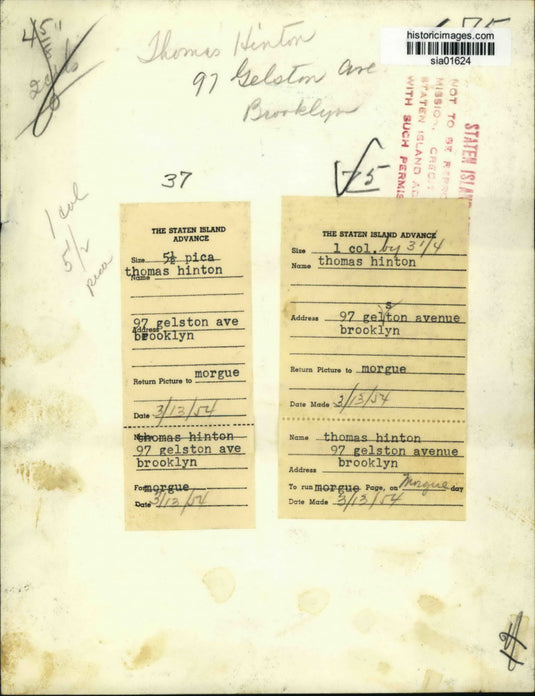 45"
historicimages.com
sia01624
Thomas Hinton
97 Gelston Ave
Brooklyn
NOT TO BE
MISSION, CREDIT
STATEN ISLAND
WITH SUCH PERMIS
STATEN ISLAN
37
75
1 col
5 1/2
pica
THE STATEN ISLAND
ADVANCE
Size 5½ pica
thomas hinton
Name
97 gelston ave
Address
brooklyn
Return Picture to morgue
Date 3/13/54
Name thomas hinton
97 gelston ave
brooklyn
For morgue
Date 3/13/54
THE STATEN ISLAND
ADVANCE
Size 1 col. by 3 1/4
Name thomas hinton
s
Address 97 gelton avenue
brooklyn
Return Picture to morgue
Date Made 3/13/54
Name thomas hinton
97 gelston avenue
brooklyn
Address
To run morgue Page, on Morgue day
Date Made 3/13/54